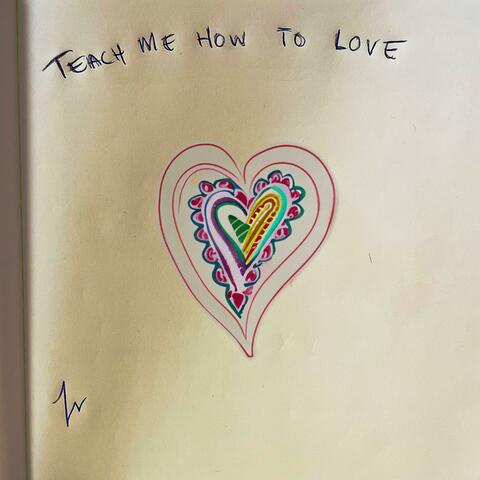 TEACH ME HOW TO LOVE